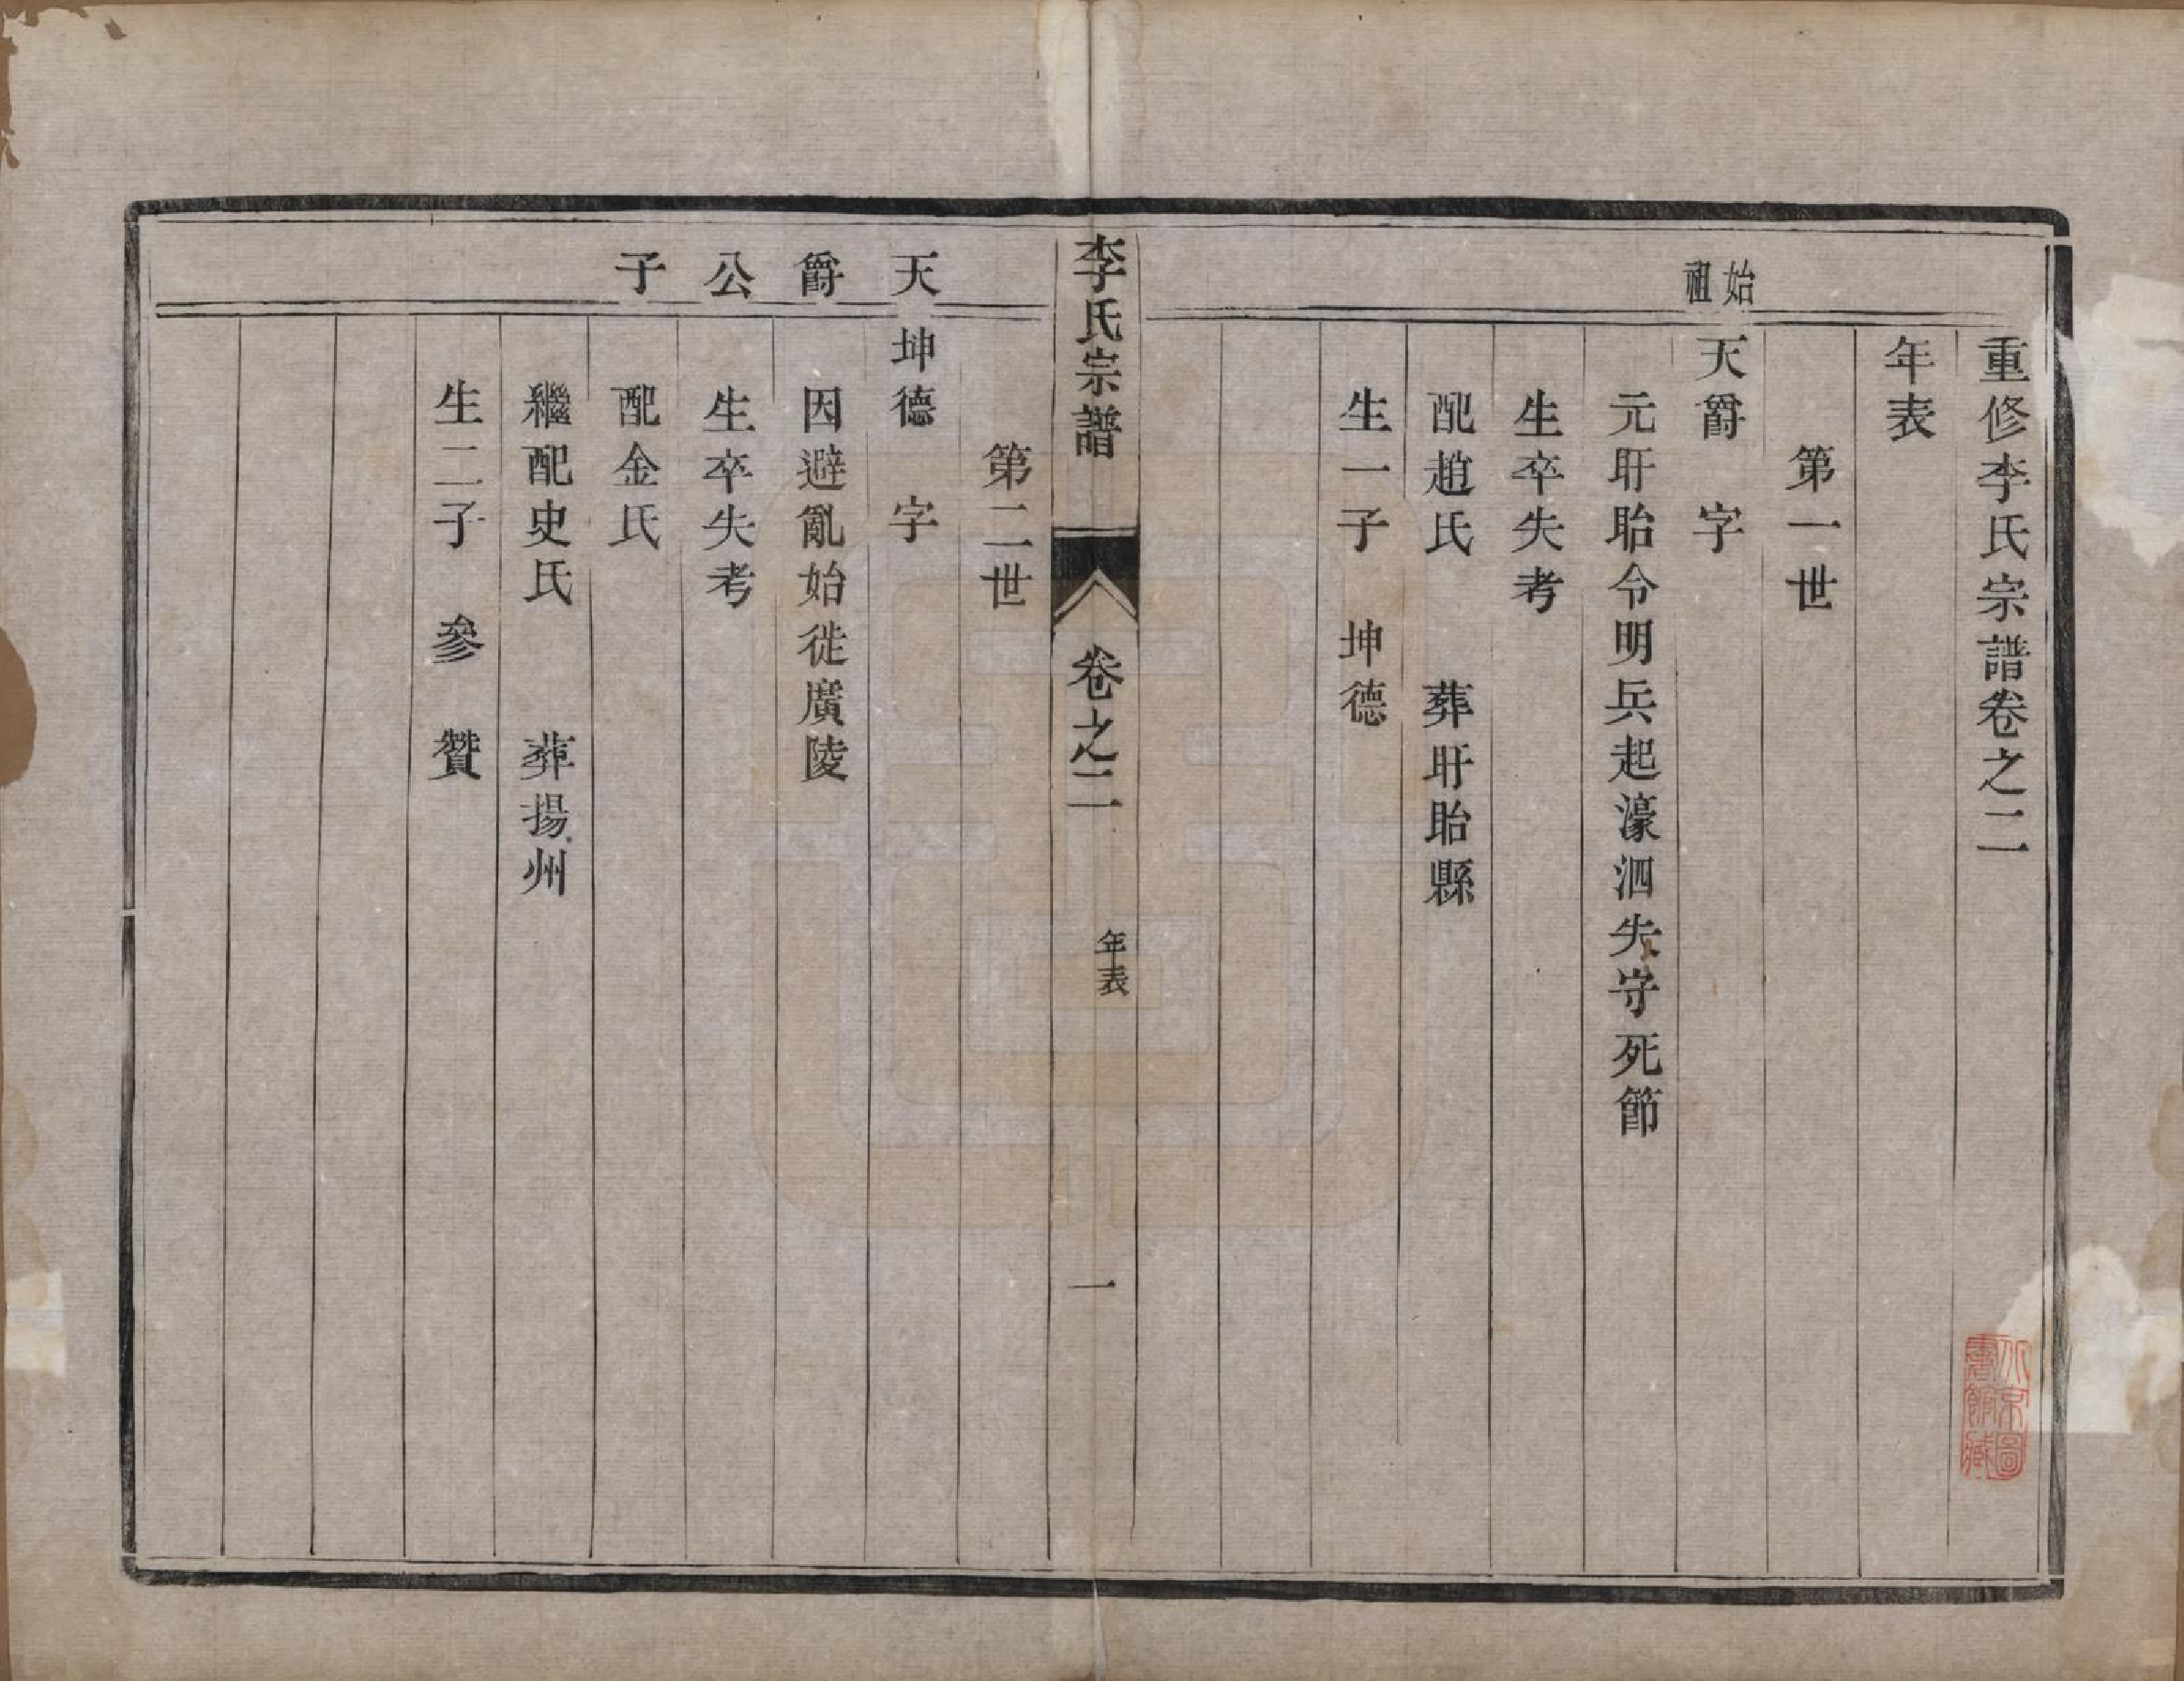 重修李氏宗譜卷之二
年表
第一世
始祖
天爵　字
元盱眙令明兵起濠泗失守死節
生卒失考
配趙氏　葬盱眙縣
生一子　坤德
李氏宗譜　卷之二　年表　一
第二世
天爵公子
坤德　字
因避亂始徙廣陵
生卒失考
配金氏
繼配史氏　葬揚州
生二子　參　贊
北京圖書館藏